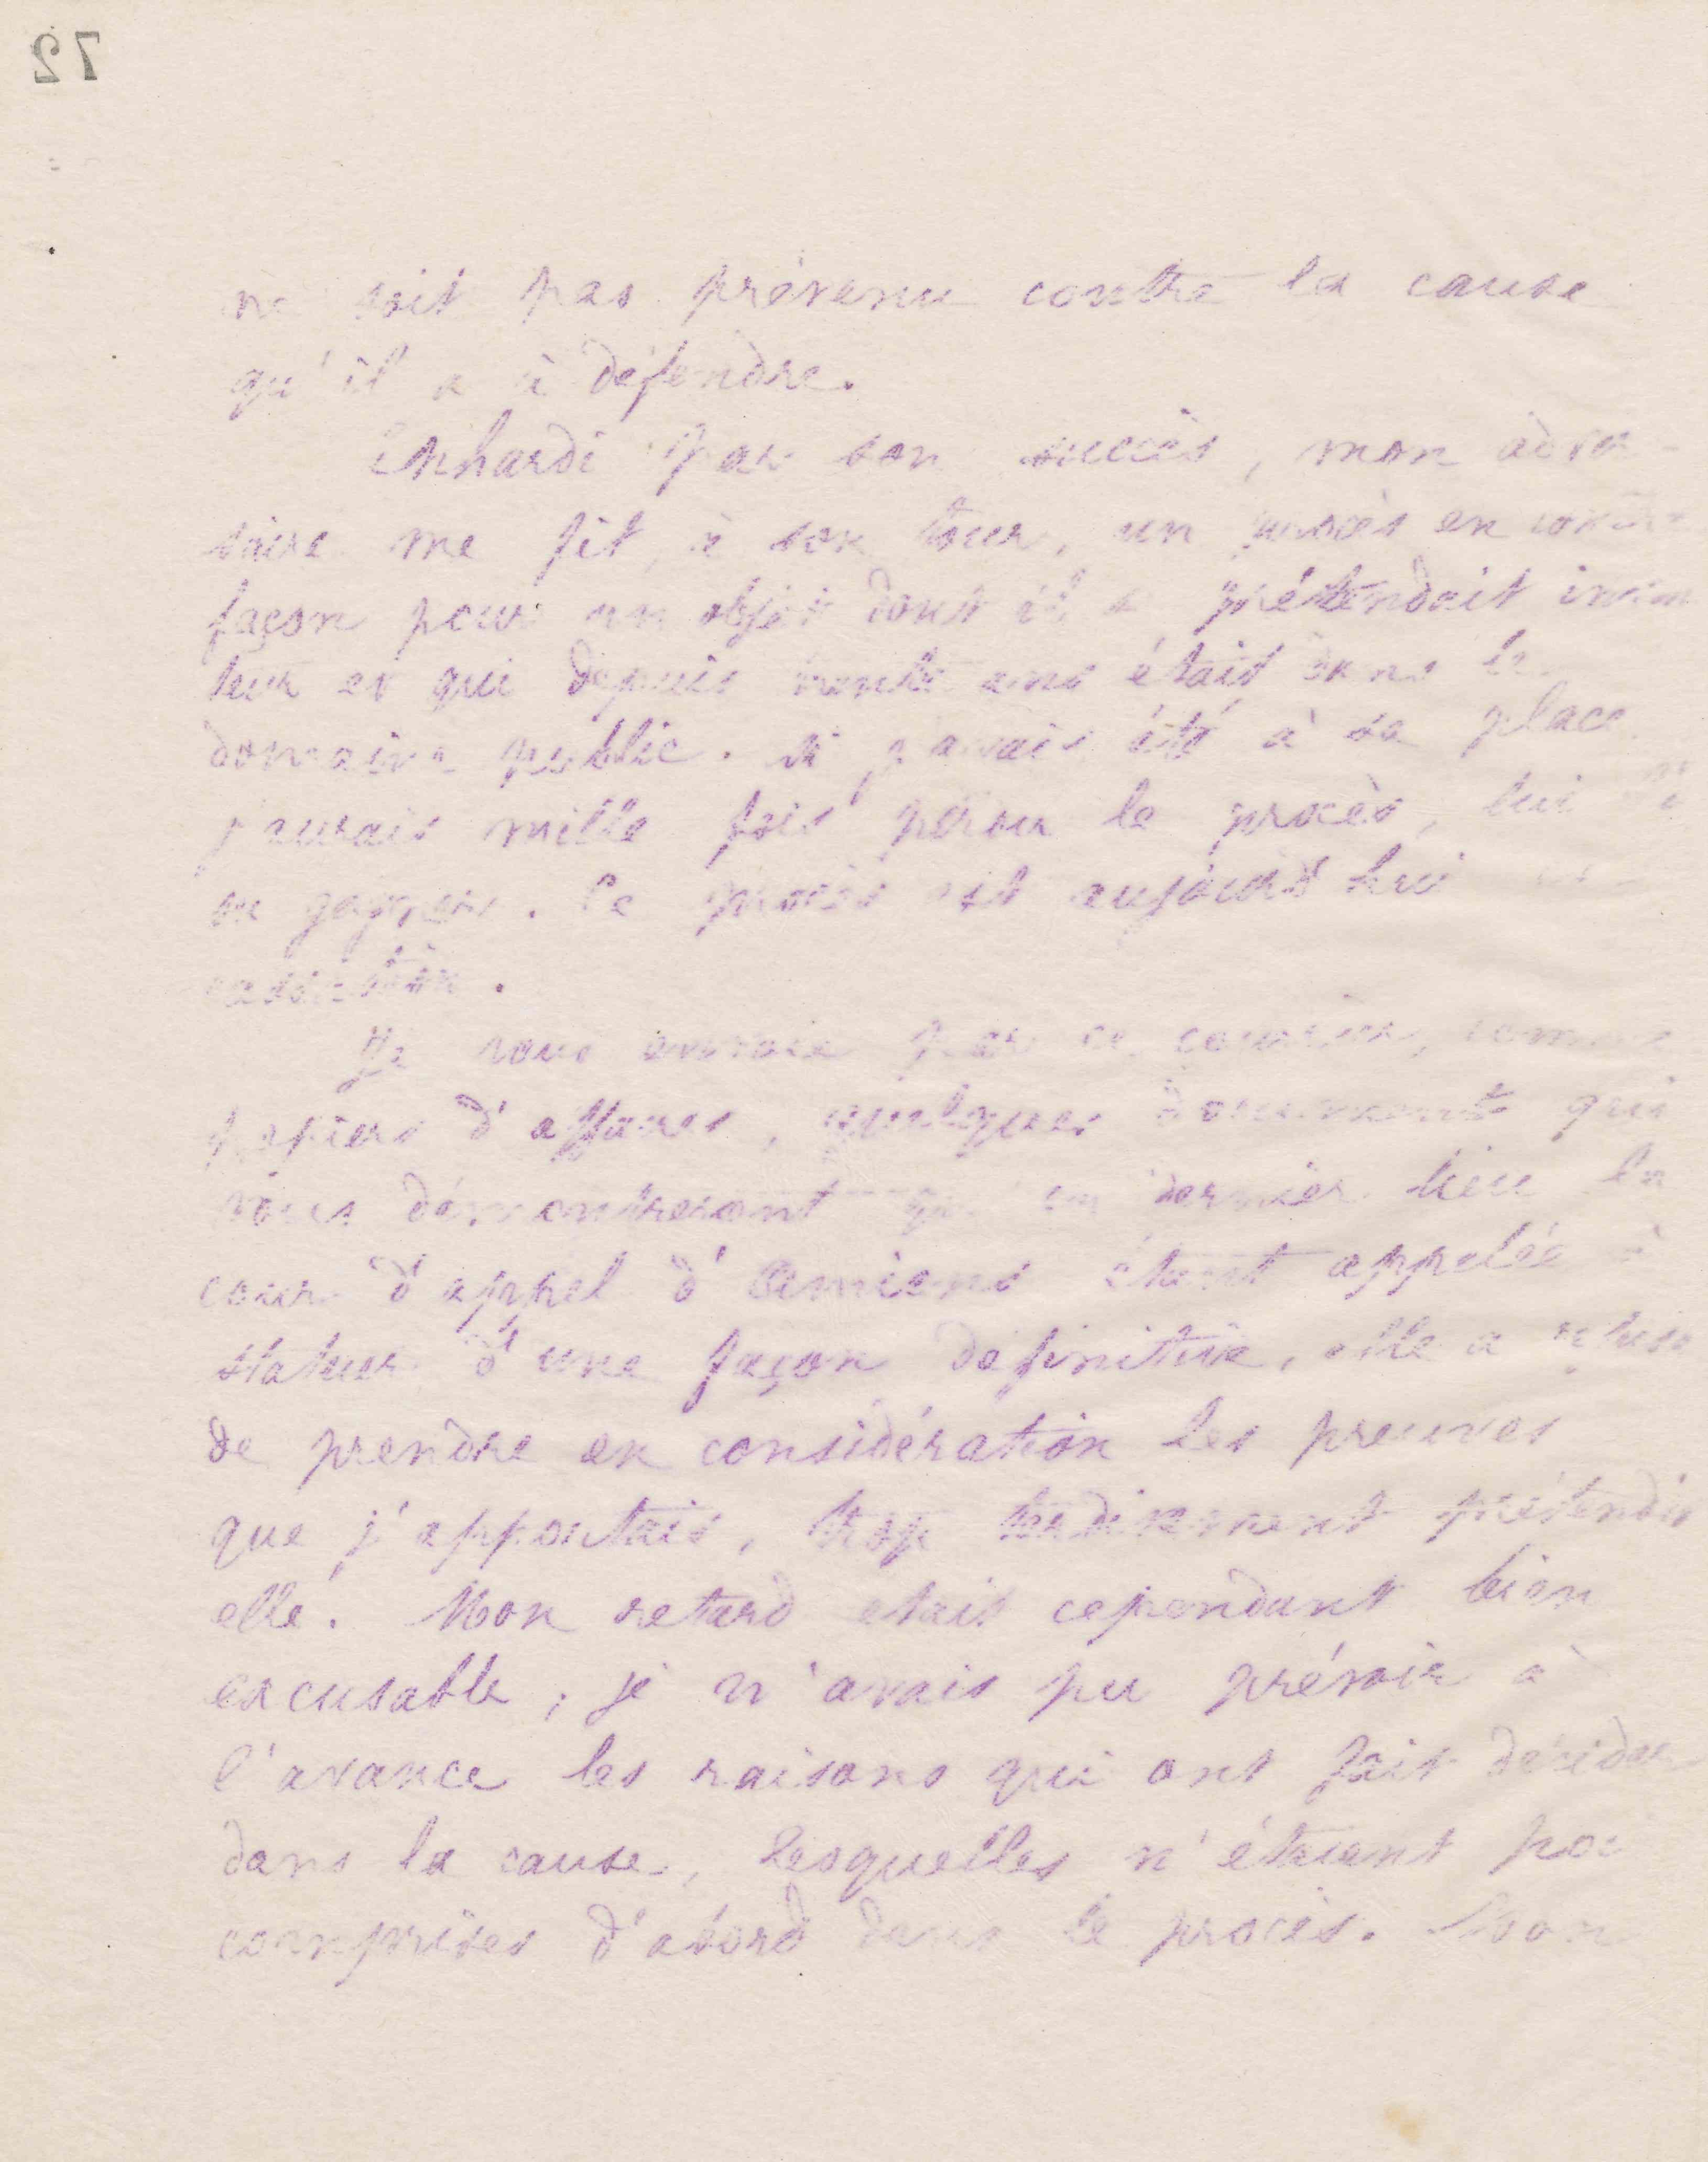 72
ne soit pas prévenu contre la cause
qu'il a à défendre.
Enhardi par son succès, mon adver-
saire me fit, à son tour, un procès en contre
façon pour un objet dont il se prétendait inven
teur et qui depuis trente ans était dans le
domaine public. Si j'avais été à sa place
j'aurais mille fois perdu le procès, lui l'a
su gagner. Ce procès est aujourd'hui en
cassation.
Je vous envoie par ce courrier, comme
papiers d'affaires, quelques documents qui
vous démontreront qu'en dernier lieu la
cour d'appel d'Amiens étant appelée à
statuer d'une façon définitive, elle a refusé
de prendre en considération les preuves
que j'apportais, trop tardivement prétendit
elle. Mon retard était cependant bien
excusable, je n'avais pu prévoir à
l'avance les raisons qui ont fait décider
dans la cause, lesquelles n'étaient pas
comprises d'abord dans le procès. Mon